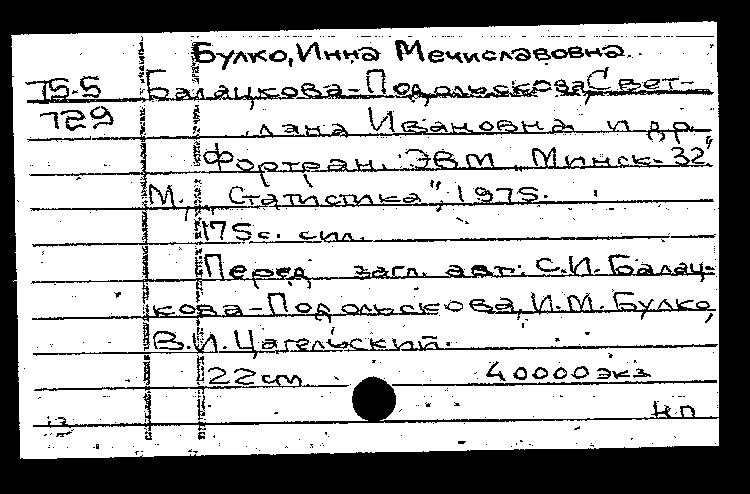 Булко, Инна Мечиславовна.
75-5 Балацкова-Подольскова, Свет-
729 лана Ивановна и др.
Фортран. ЭВМ "Минск-32"
М., "Статистика", 1975.
175 с. с ил.
Перед загл. авт.: С.И. Балац-
кова-Подольскова, И.М. Булко,
В.И. Цагельский.
22 см 40000 экз
13 нп